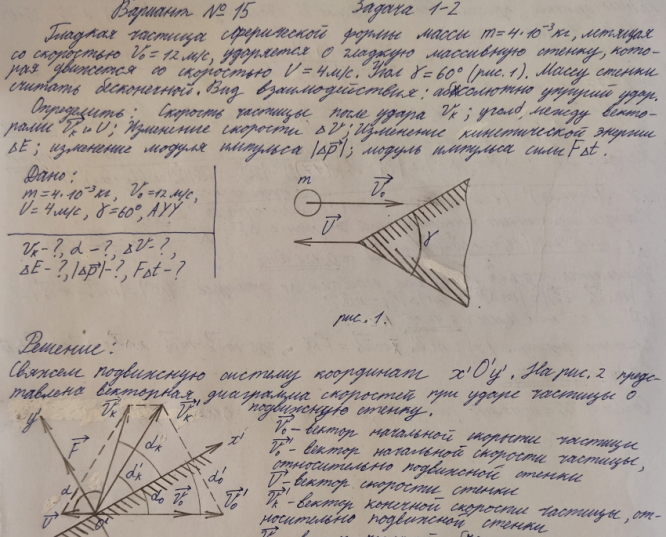 Вариант № 15 Задача 1-2
Гладкая частица сферической формы массы m=4·10⁻³ кг, летящая
со скоростью V₀=12 м/с, ударяется о гладкую массивную стенку, кото-
рая движется со скоростью U=4 м/с. Угол γ=60° (рис. 1). Массу стенки
считать бесконечной. Вид взаимодействия: абсолютно упругий удар.
Определить: Скорость частицы после удара Vₖ; угол α между векто-
рами V⃗ₖ и U⃗; Изменение скорости ΔV; Изменение кинетической энергии
ΔE; изменение модуля импульса |Δp⃗|; модуль импульса силы FΔt.
Дано:
m=4·10⁻³ кг, V₀=12 м/с,
U=4 м/с, γ=60°, АУУ
Vₖ-?, α-?, ΔV-?,
ΔE-?, |Δp⃗|-?, FΔt-?
m V⃗₀
U⃗
γ
рис. 1.
Решение:
Свяжем подвижную систему координат x'O'y'. На рис. 2 пред-
ставлена векторная диаграмма скоростей при ударе частицы о
подвижную стенку.
V⃗₀ - вектор начальной скорости частицы
V⃗₀' - вектор начальной скорости частицы,
относительно подвижной стенки
U⃗ - вектор скорости стенки
V⃗ₖ' - вектор конечной скорости частицы, от-
носительно подвижной стенки
y' V⃗ₖ V⃗ₖ' x'
F⃗ αₖ αₖ' α₀'
α U⃗ O' α₀ V⃗₀ V⃗₀'